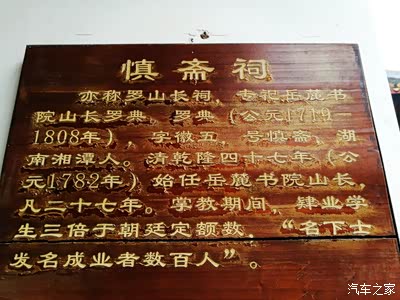 慎斋祠
亦称罗山长祠，专祀岳麓书
院山长罗典。罗典（公元1719—
1808年），字徽五，号慎斋，湖
南湘潭人。清乾隆四十七年（公
元1782年）始任岳麓书院山长，
凡二十七年。掌教期间，肄业学
生三倍于朝廷定额数，“名下士
发名成业者数百人”。
汽车之家